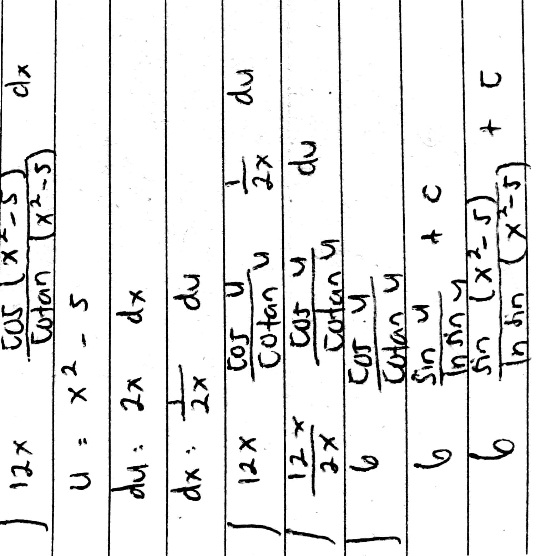 ∫ 12x cos (x² - 5) / cotan (x² - 5) dx
u = x² - 5
du : 2x dx
dx : 1/2x du
∫ 12x cos u / cotan u 1/2x du
∫ 12x/2x cos u / cotan u du
∫ 6 cos u / cotan u
6 sin u / ln sin u + c
6 sin (x² - 5) / ln sin (x² - 5) + c